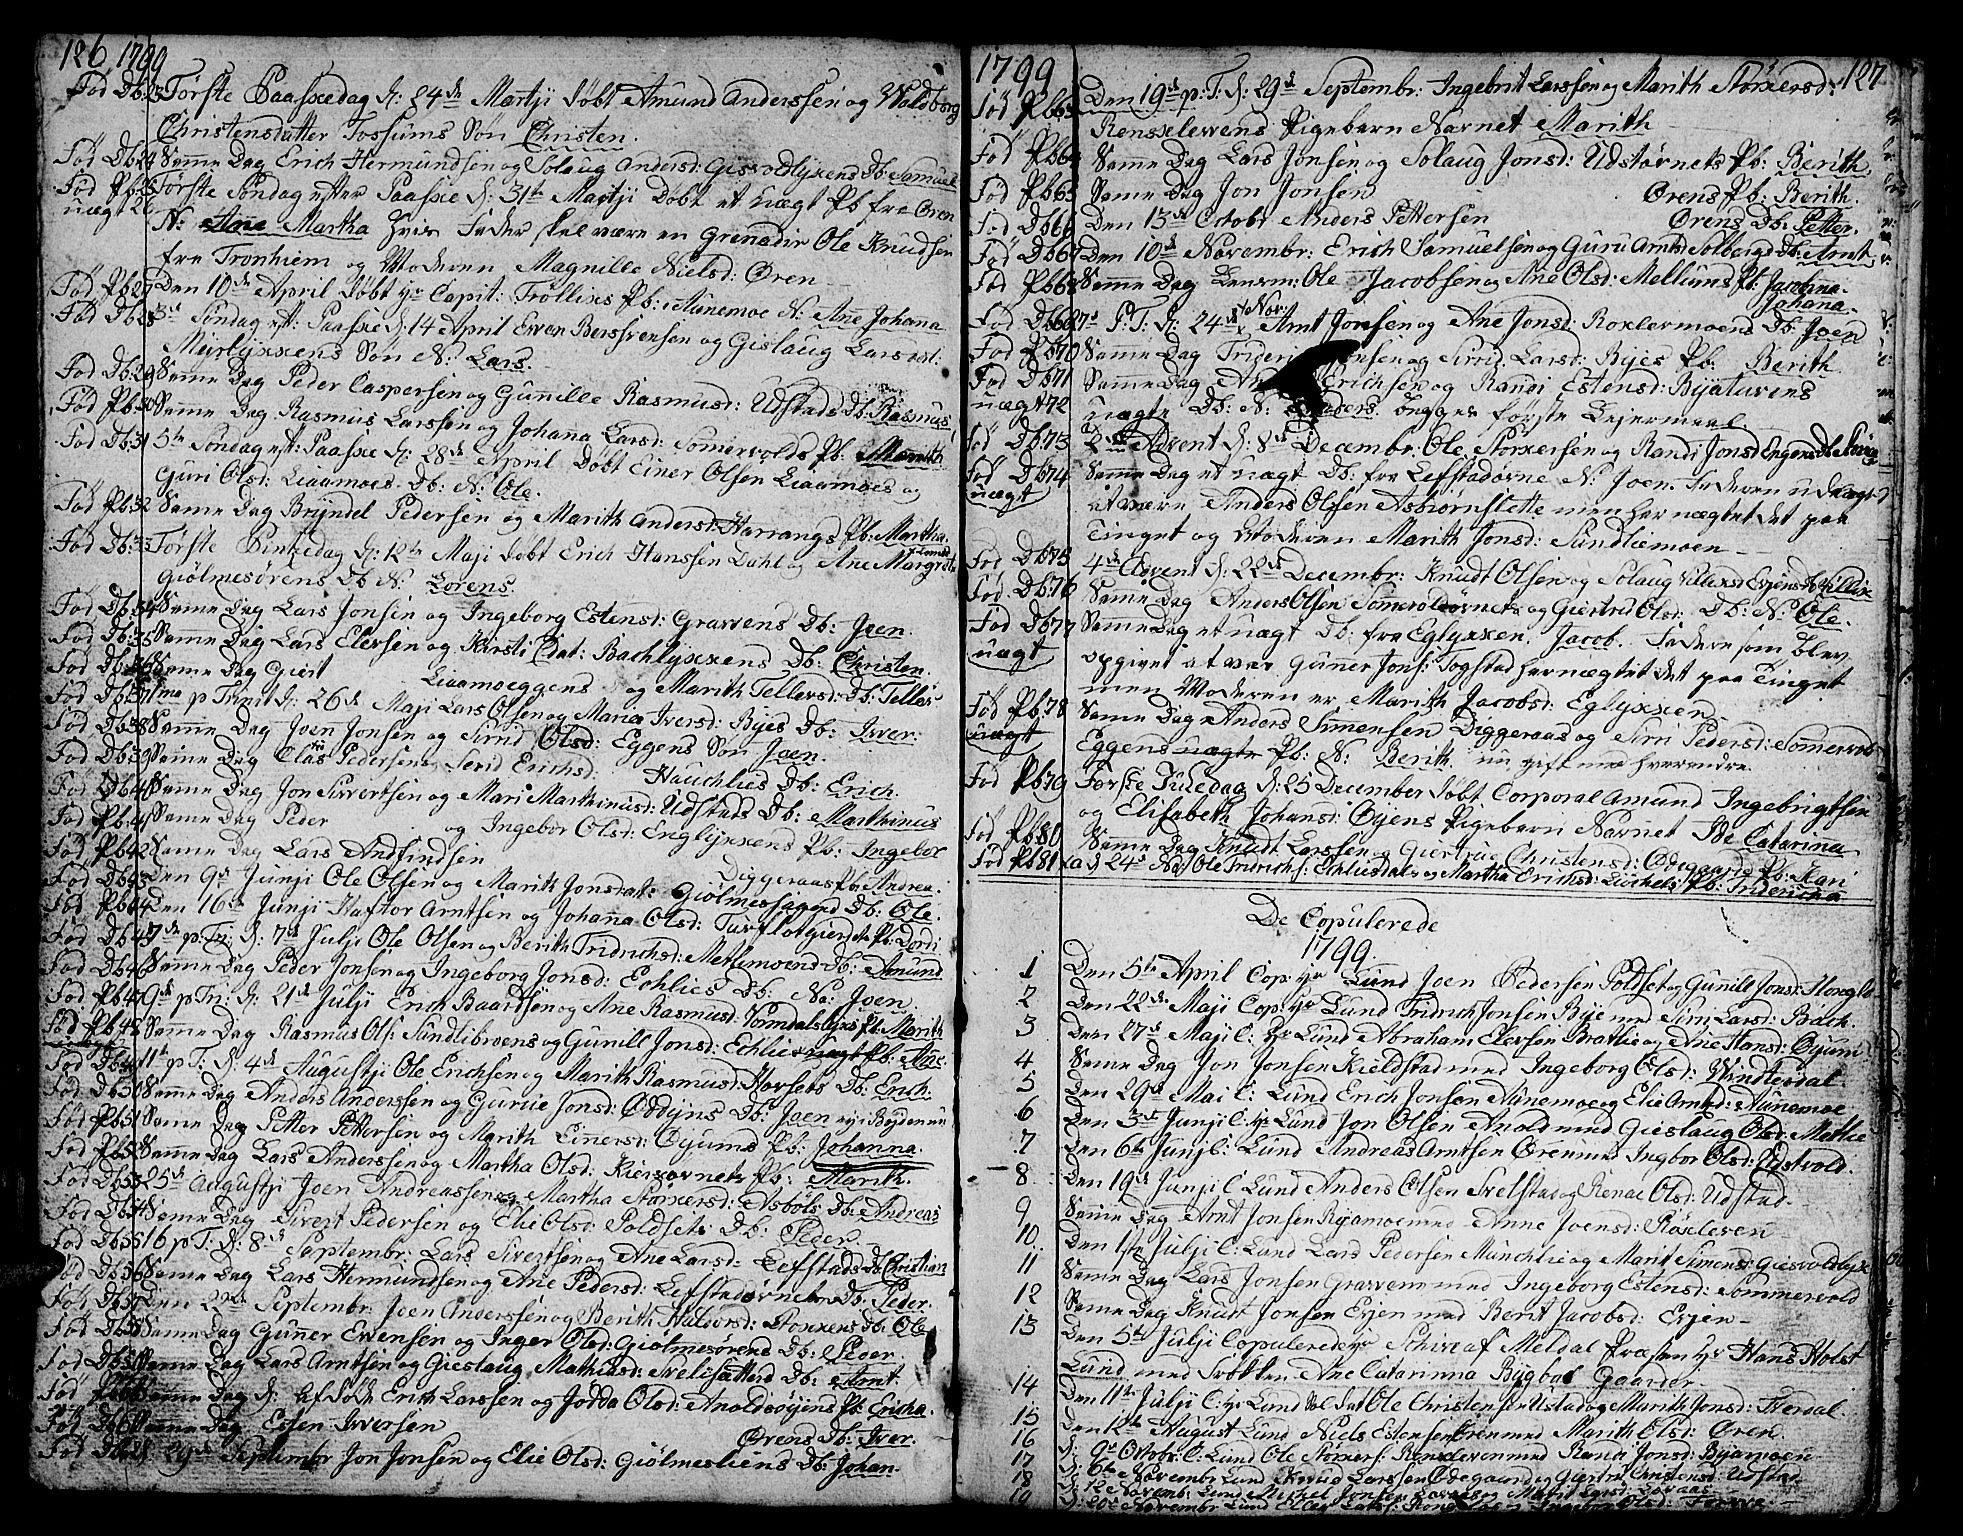 126 1799
Fød Db: 23 Første Paaskedag d: 24de Martji døbt Amund Anderssen og Waldborg
Christensdatter Tossums Søn Christen.
Fød Db: 24 Samme Dag Erich Hermundsen og Solaug Andersd: Db: Samuel
Fød Pb: 25 Første Søndag efter Paaske d: 31te Martji Døbt et uægt Pb fra Øren
uægt 26 N: Ane Martha hvis Fader skal være en Grenadir Ole Knudsen
fra Tronhiem og Moderen Magnille Nielsd: Øren
Fød Pb: 27 Den 10de April døbt hr Capit: Trollixs Pb: Aunemoe N: Ane Johana
Fød Db: 28 3de Søndag eft: Paaske d: 14 April Ewen Berssvensen og Gislaug Larsd:
Mærlyxkens Søn N: Lars.
Fød Db: 29 Samme Dag Peder Caspersen og Gunille Rasmusd: Udstads Db: Rasmus
Fød Pb: 30 Samme Dag Rasmus Larssen og Johana Larsd: Somervolds Pb: Marith
Fød Db: 31 5te Søndag eft: Paaske d: 28de April Døbt Einer Olsen Liaamoes og
Guri Olsd: Liaamoes Db: N: Ole.
Fød Pb: 32 Samme Dag Bryndel Pedersen og Marith Andersd: Harrangs Pb: Martha
Fød Db: 33 Første Pintzedag d: 12te Maji døbt Erich Hanssen Dahl og Ane Margreta
Giølmesørens Db N. Lorens.
Fød Db: 34 Samme Dag Lars Jonsen og Ingeborg Estensd: Gravens Db: Joen.
Fød Db: 35 Samme Dag Lars Elevsen og Kirsti Bachlyxkens Db: Christen.
Fød Db: 36 Samme Dag Giert Liaamoeggens og Marith Tellefsd: Db: Tellef
Fød Db: 37 1ma p Trinit d: 26de Maji Lars Olsen og Maria Iversd: Byes Db: Iwer.
Fød Db: 38 Samme Dag Joen Jonsen og Sirrid Olsd: Eggens Søn Joen.
Fød Db: 39 Samme Dag Clas Pedersen og Serid Erichsd: Hauchlies Db: Erich.
Fød Db: 40 Samme Dag Jon Sivertsen og Mari Marthinusd: Udstads Db: Marthinus
Fød Pb: 41 Samme Dag Peder og Ingebor Olsd: Englyxkens Pb: Ingebor
Fød Pb 42 Samme Dag Lars Andfindsen Diggeraas Pb: Andrea.
Fød Db: 43 Den 9de Junji Ole Olsen og Marith Jonsdat: Giølmeshagens Db: Ole.
Fød Pb 44 Den 16de Junji Haftor Arntsen og Johana Olsd: Pb: Dordi
Fød Db 45 7de p: Tr: d: 7de Julji Ole Olsen og Berith Fridrichsd: Metlimoens Db: Amund
Fød Db 46 Samme Dag Peder Jonsen og Ingeborg Jonsd: Echlies Db: N: Joen.
Fød Pb 47 9de p Tri: d: 21de Julji Erich Baardsen og Ane Rasmusd: Pb: Marith
Fød Pb 48 Samme Dag Rasmus Ols: Sundlibroens og Gunille Jonsd: Echlies uægt Pb: Ane.
Fød Db: 49 11te p T: d: 4de Augustji Ole Erichsen og Marith Rasmusd: Horsets Db: Erich.
Fød Db 50 Samme Dag Anders Anderssen og Gurue Jonsd: Oddyins Db: Joen
Fød Pb 51 Samme Dag Petter Pettersen og Marith Einersd: Øyums Pb: Johanna.
Fød Pb 52 Samme Dag Lars Anderssen og Martha Olsd: Pb: Marith.
Fød Db 53 25de Augustji Joen Andreassen og Martha Størkersd: Asbøls Db: Andreas
Fød Db 54 Samme Dag Sivert Pedersen og Elie Olsd: Poldsets Db: Peder.
Fød Db 55 16 p T: d: 8de Septembr: Lars Sivertsen og Ane Larsd: Lefstads Db Christian
Fød Db 56 Samme Dag Lars Hermundsen og Ane Pedersd: Lefstadørnets Db: Peder.
Fød Db 57 Den 22de Septembr: Joen Anderssen og Berith Haldorsd: Db: Ole
Fød Db 58 Samme Dag Guner Ewensen og Inger Olsd: Giølmesørens Db: Peder.
Fød Db 59 Samme Dag Lars Arntsen og Gieslaug Mathiasd: Db: Arnt.
Fød Pb 60 Samme Dag Erich Larssen og Jodda Olsd: Anoldsøyens Pb: Ericha.
Fød Db 61 Samme Dag Esten Iwersen Ørens Db: Iver.
Fød Db 62 29de Septembr Jon Jonsen og Elie Olsd: Giølmesliens Db: Johan.
1799 127
Fød Pb 63 Den 19de p: T: d: 29de Septembr: Ingebrit Larssen og Marith Størkersd:
Pigebarn Navnet Marith
Fød Pb 64 Samme Dag Lars Jonsen og Solaug Jonsd: Udstørnets Pb: Berith.
Fød Pb 65 Samme Dag Jon Jonsen Ørens Pb: Berith.
Fød Db 66 Den 13de Octobr Anders Pettersen Ørens Db: Petter.
Fød Db 67 Den 10de Novembr: Erich Samuelsen og Guru Arntsd: Solbergs Db: Arnt.
Fød Pb 68 Samme Dag Lensm: Ole Jacobsen og Ane Olsd: Mellums Pb: Jacobina
Johana.
Fød Db 69 27de P: T: d: 24de Novr Arnt Jonsen og Ane Jonsd: Db: Joen
Fød Pb 70 Samme Dag Frideric Jonsen og Sirrid Larsd: Byes Pb: Berith.
Fød Db 71 Samme Dag Erichsen og Randi Estensd: Byaturens
uægt 72 uægte Db: N: Anders. begges første Leiermaal
Fød Db 73 2den Advent d: 8de Decembr: Ole Størkersen og Randi Jonsd Engens
Fød Db 74 Samme Dag et uægt Db: fra Lefstadørne N: Joen. Faderen udlagt
uægt at være Anders Olsen Asbiørnslette men har nægtet det paa
Tinget og Moderen Marith Jonsd: Sundlæmoen
Fød Db 75 4de Advent d: 22de Decembr: Knudt Olsen og Solaug
Fød Db 76 Samme Dag Anders Olsen og Giertrud Olsd: Db: N: Ole.
Fød Db 77 Samme Dag et uægt Db: fra Eglyxken. Jacob. Faderen som blev
uægt opgivet at vær Guner Jons: Togstad har nægtet det paa Tinget
men Moderen er Marith Jacobsd: Eglyxken
Fød Pb 78 Samme Dag Anders Simensen Diggeraas og Siri Pedersd: Somervold
uægt Eggens uægte Pb: N: Berith nu gift med hverandre.
Fød Pb 79 Første Juledag d: 25 December døbt Corporal Amund Ingebrigtsen
og Elisabeth Johansd: Øyens Pigebarn Navnet Catarina
Fød Pb 80 Samme Dag Knudt Larssen og Giertrue Christensd: Ødegaards Pb: Kari
Fød Pb 81 d 24de Ole Fridrichs: Echliesdal og Martha Erichsd: Pb: Friderica
De Copulerede
1799.
1 Den 5te April Cop: hr Lund Joen Pedersen Poldset og Gunild Jonsd:
2 Den 22de Maji Cop: hr Lund Fridrich Jonsen Bye med Siri Larsd: Bach.
3 Den 27de Maji C: hr Lund Abraham Elevsen Bratlie og Ane Hansd: Øyum
4 Samme Dag Jon Jonsen Kieldstad med Ingeborg Olsd: Windterdal.
5 Den 29de Mai C: Lund Erich Jonsen Aunemoe og Elie Arntsd: Aunemoe
6 Den 3de Junji C: hr Lund Jon Olsen Anold med Gieslaug Olsd: Metlie
7 Den 6te Junji C: Lund Andreas Arntsen Øren med Ingbor Olsd: Udstvold.
8 Den 19de Junji C Lund Anders Olsen og Renae Olsd: Udstad
9 Samme Dag Arnt Jonsen Byamoe med Anne Joensd:
10 Den 1te Julji C: Lund Lars Pedersen Munchlie og Marit Simensd:
11 Samme Dag Lars Jonsen Graven med Ingeborg Estensd: Sommervold
12 Samme Dag Knudt Jonsen Evjen med Berit Jacobsd: Evjen
13 Den 5te Julji Copulerede hr af Meldal hr Hans Holst
Lund med Frøkken Ane Catarinna Bygbal Gaarder
14 Den 11te Julji C: hr Lund Ole Christensen Ustad og Marith Jonsd:
15 Den 12te August Lund Niels Estensen Øren med Marith Olsd: Øren.
16 d: 9de Octobr C: Lund Ole Størkers: med Randi Jonsd: Byamoen
17 d: 6te Novembr Lund Knud Larssen Ødegaard og Giertru Christensd: Udstad
18 d: 12te Novembr Lund Michel Jonsen og Marit Larsd:
19 d: 20de Novembr Lund